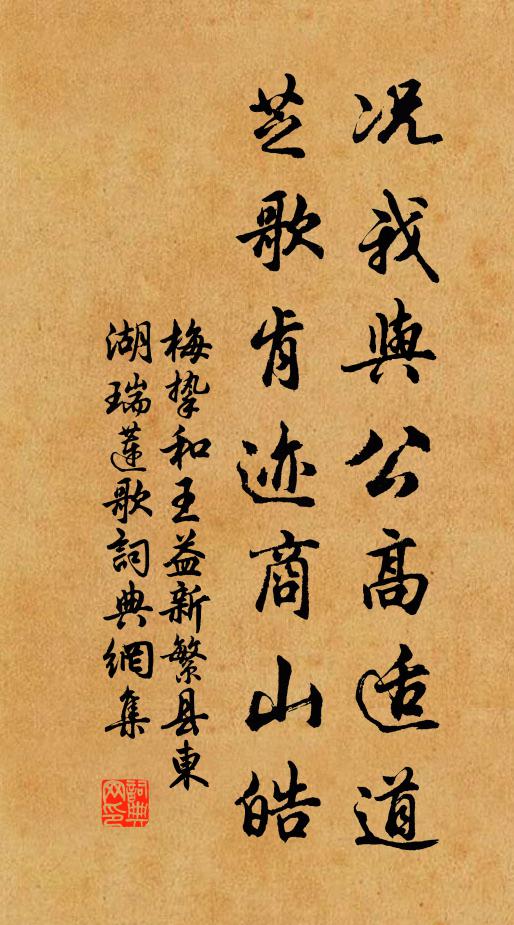 况我與公高适道
芝歌肯迹商山皓
梅挚和王益新繁县東
湖瑞蓮歌詞典網集
詞典网印